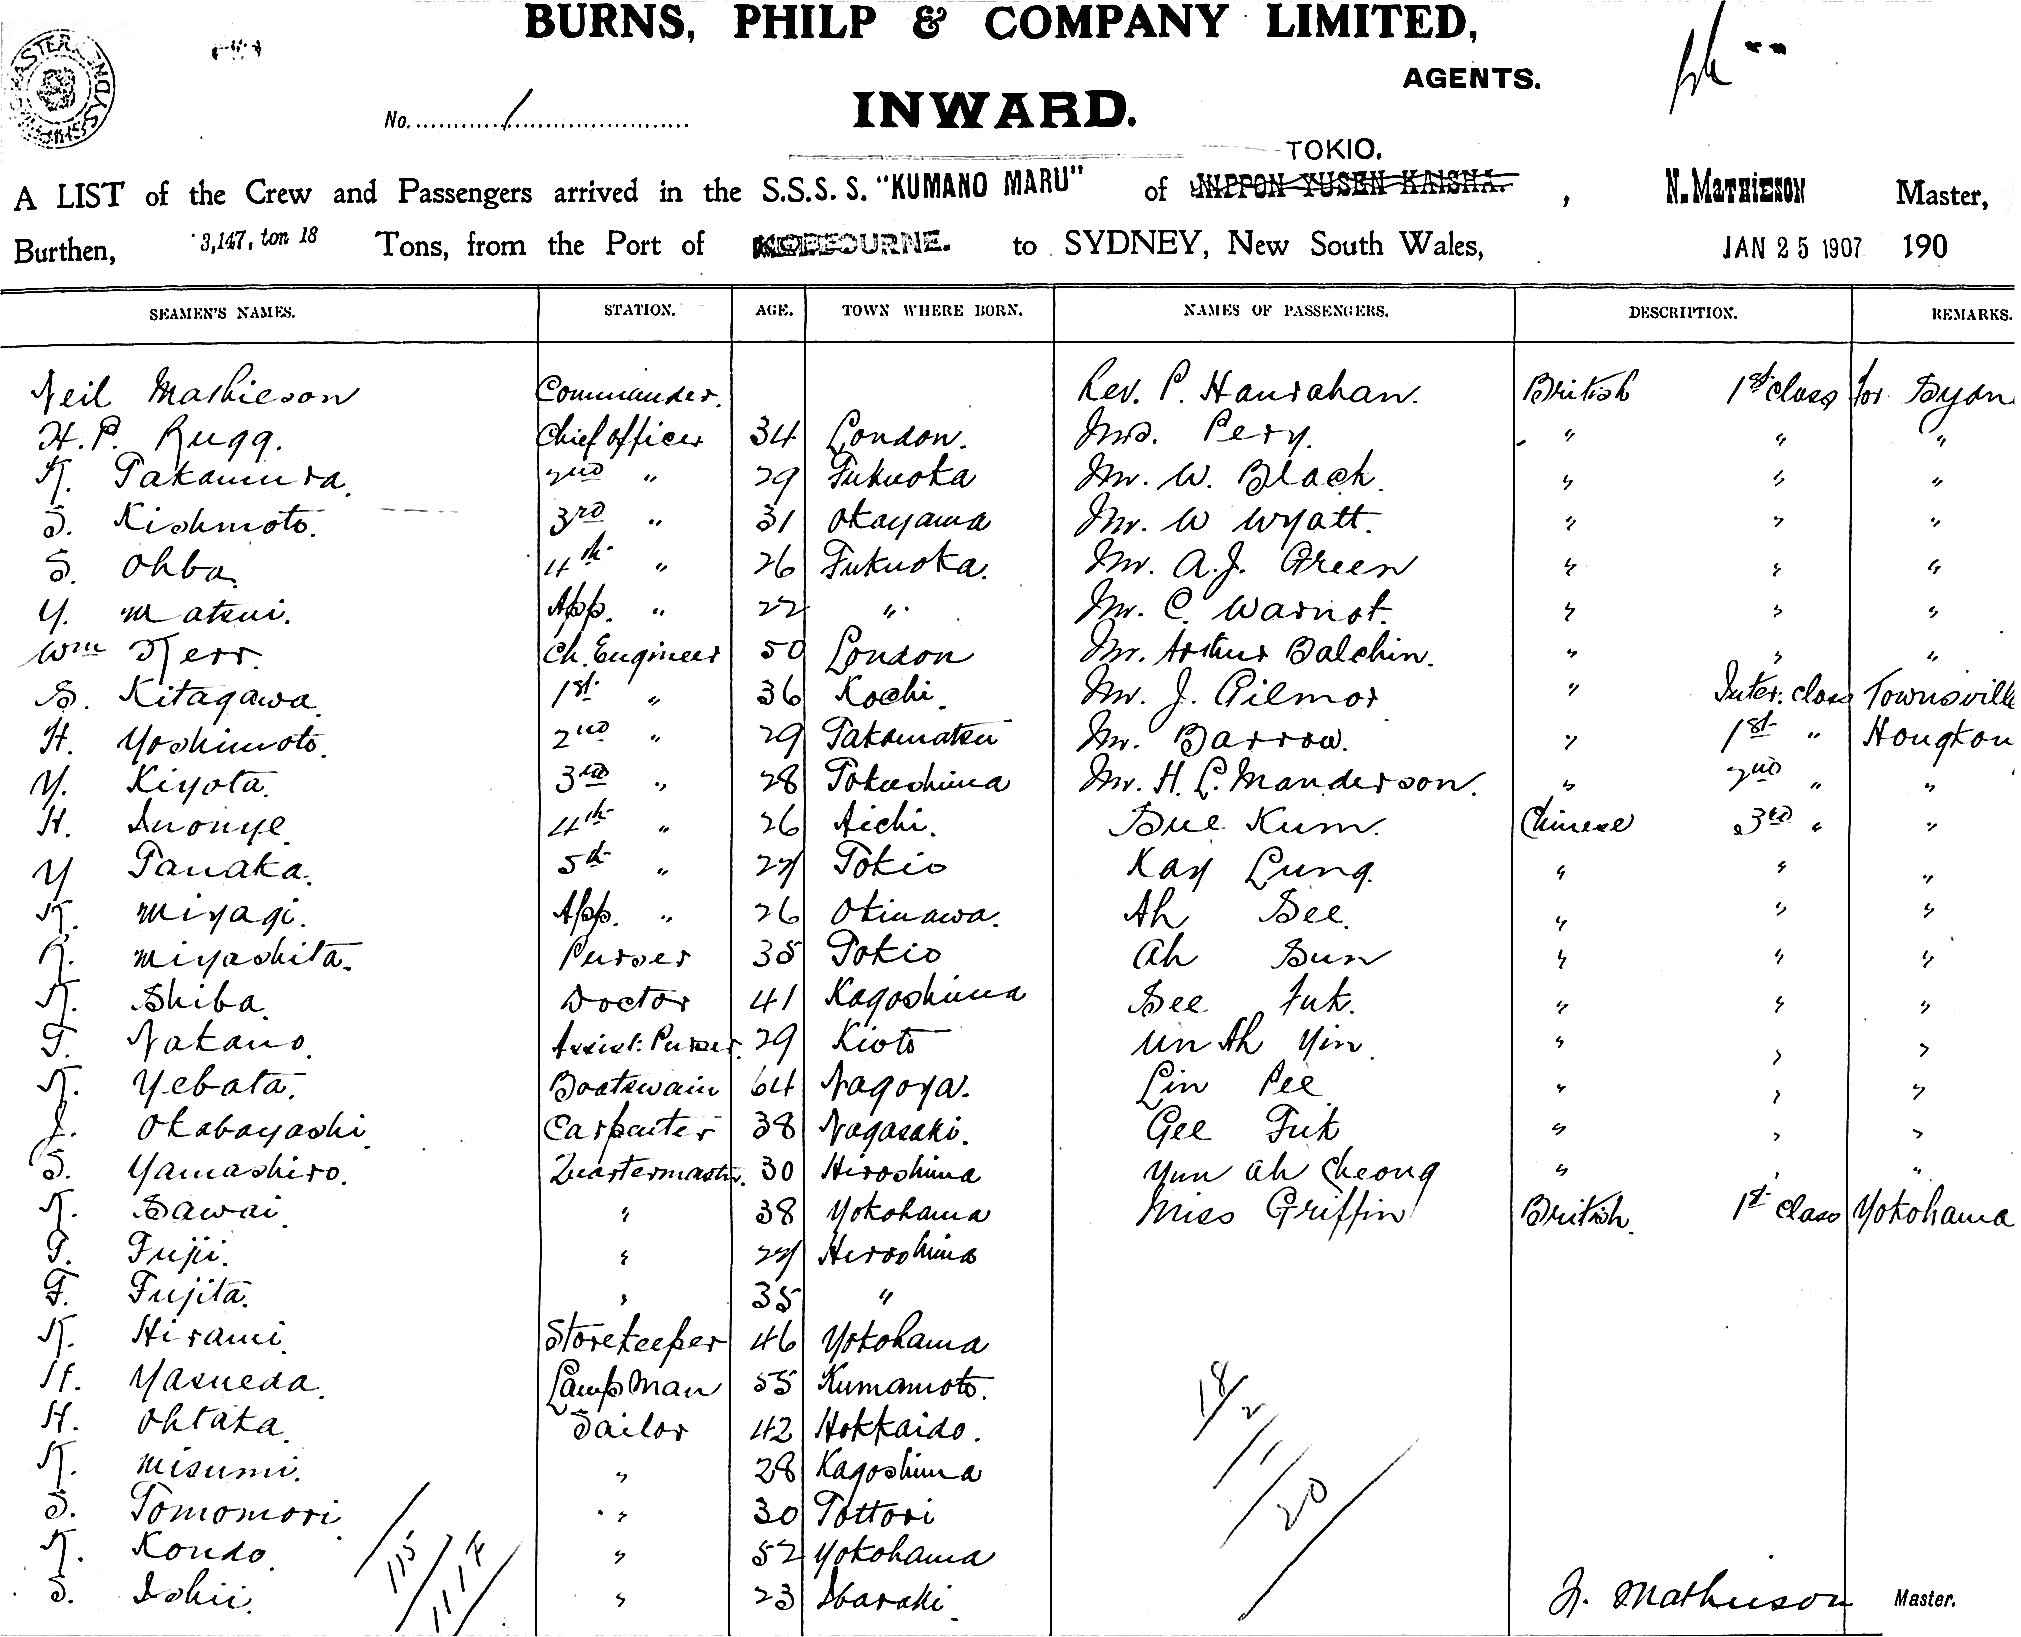 BURNS, PHILP & COMPANY LIMITED,
AGENTS.
No. 1
INWARD.
TOKIO.
A LIST of the Crew and Passengers arrived in the S.S.S. S. "KUMANO MARU" of NIPPON YUSEN KAISHA. , N. MATHIESON Master,
Burthen, 3,147, ton 18 Tons, from the Port of to SYDNEY, New South Wales, JAN 25 1907 190
SEAMEN'S NAMES. STATION. AGE. TOWN WHERE BORN. NAMES OF PASSENGERS. DESCRIPTION. REMARKS.
Neil Mathieson Commander. Rev. P. Hanrahan. British 1st class for Sydn
H. P. Rugg. Chief officer 34 London. Mrs. Pery. " " "
K. Takamura. 2nd " 29 Fukuoka Mr. W. Black. " " "
S. Kishmoto. 3rd " 31 Okayama Mr. W Wyatt. " " "
S. Ohba. 4th " 26 Fukuoka. Mr. A. J. Green " " "
Y. Matsui. App. " 22 " Mr. C. Warnot. " " "
Wm Kerr. Ch. Engineer 50 London Mr. Arthur Balchin. " " "
S. Kitagawa. 1st " 36 Kochi. Mr. J. Gilmor " Inter. class Townsville
H. Yoshimoto. 2nd " 29 Takamatsu Mr. Barrow. " 1st " Hongkon
Y. Kiyota. 3rd " 28 Tokushima Mr. H. L. Manderson. " 2nd " "
H. Inouye. 4th " 26 Aichi. Sue Kum. Chinese 3rd " "
Y Tanaka. 5th " 27 Tokio Kay Lung. " " "
K. Miyagi. App. " 26 Okinawa. Ah See. " " "
K. Miyashita. Purser 35 Tokio Ah Sun " " "
K. Shiba. Doctor 41 Kagoshima See Fuk. " " "
T. Nakano. Assist. Purser. 29 Kioto Un Ah Yin. " " "
K. Yebata. Boatswain 64 Nagoya. Lin Pee " " "
J. Okabayashi. Carpenter 38 Nagasaki. Gee Fuk " " "
S. Yamashiro. Quartermaster. 30 Hiroshima Yun Ah Cheong " " "
K. Sawai. " 38 Yokohama Miss Griffin British. 1st class Yokohama
T. Fujii. " 27 Hiroshima
F. Fujita. " 35 "
K. Hirami. Storekeeper 46 Yokohama
H. Yasueda. Lamp Man 55 Kumamoto.
H. Ohtaka. Sailor 42 Hokkaido.
K. Misumi. " 28 Kagoshima
S. Tomomori. " 30 Tottori
K. Kondo. " 52 Yokohama
S. Ishii. " 23 Ibaraki.
18/2
/1
/20
115
N. Mathieson Master.